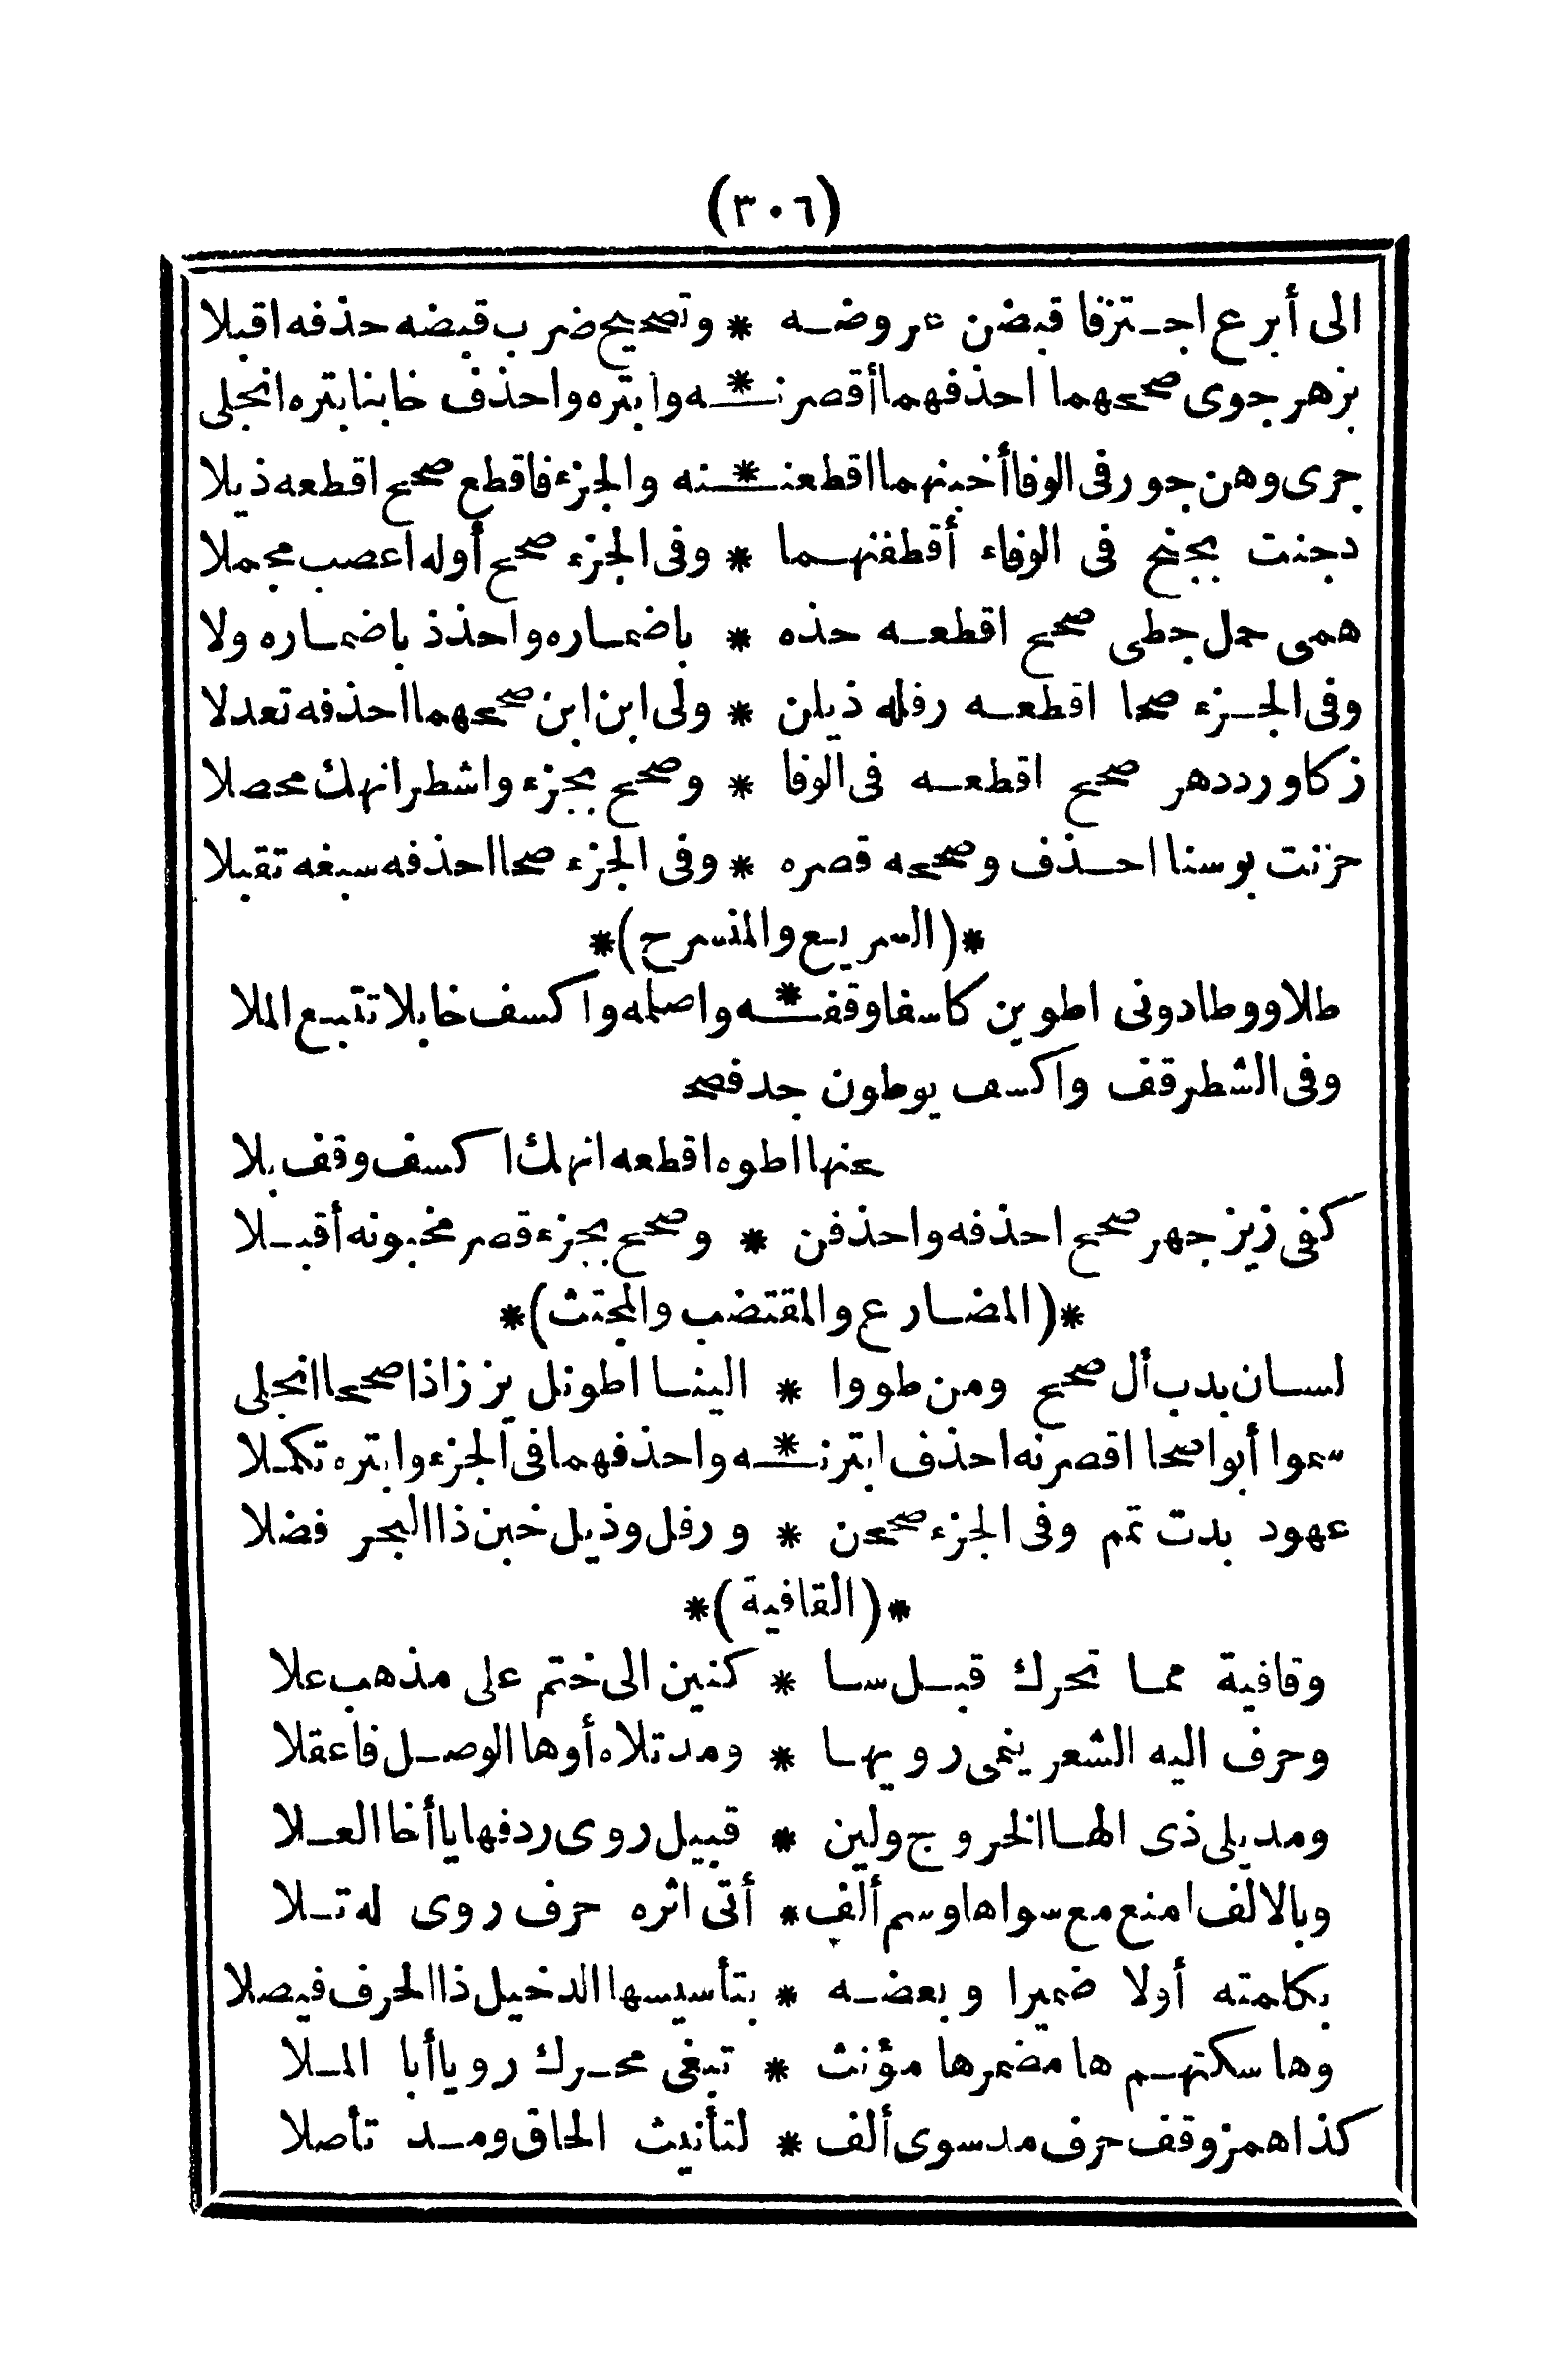 (٣٠٦)
الى أبرع اجـتزفا قبضن عروضـه * وتصحيح ضرب قبضه حذفه اقبلا
بزهر جوى صححهما احذفهما أقصرنـ*ـه وابتره واحذف خابنا بتره انجلى
جرى وهن جور فى الوفا أخبنهما اقطعنـ*ـنه والجزء فاقطع صحح اقطعه ذيلا
دجنت بجنح فى الوفاء أقطفنهـما * وفى الجزء صحح أوله اعصب مجملا
همى حمل جطى صحح اقطعـه حذه * باضمـاره واحذذ باضمـاره ولا
وفى الجـزء صححا اقطعـه رفله ذيلن * ولى ابن ابن صححهما احذفه تعدلا
زكا ورددهر صحح اقطعـه فى الوفا * وصحح بجزء واشطر انهك محصلا
حزنت بوسنا احـذف وصححه قصره * وفى الجزء صححا احذفه سبغه تقبلا
*(السريع والمنسرح)*
طلا ووطا دونى اطوين كاسفا وقفـ*ـه واصلمه واكسف خابلا تتبـع الملا
وفى الشطر قف واكسف يوطون جد فصحـ
ـحنها اطوه اقطعه انهك اكسف وقف بلا
كفى زيز جهر صحح احذفه واحذفن * وصحح بجزء قصر مخبونه أقبـلا
*(المضـارع والمقتضب والمجتث)*
لسـان بدب أل صحح ومن طووا * الينـا اطونل يززاذا صححا انجلى
سموا أبوا صححا اقصرنه احذف ابترنـ*ـه واحذفهما فى الجزء وابتره تكمـلا
عهود بدت تمم وفى الجزء صححن * ورفل وذيل خبن ذا البحر فضلا
*(القافية)*
وقافية ممـا تحرك قبـل سـا * كنين الى ختم على مذهب علا
وحرف اليه الشعر ينمى رويهـا * ومد تلاه أوها الوصـل فاعقلا
ومد يلى ذى الهـا الخروج ولين * قبيل روى ردفها يا أخا العـلا
وبالالف امنع مع سواها وسم ألف * أتى اثره حرف روى له تـلا
بكلمته أولا ضميرا وبعضـه * بتأسيسها الدخيل ذا الحرف فيصلا
وها سكتهـم ها مضمرها مؤنث * تبغى محـرك رويا أبا المـلا
كذا همز وقف حرف مد سوى ألف * لتأنيث الحاق ومـد تأصلا